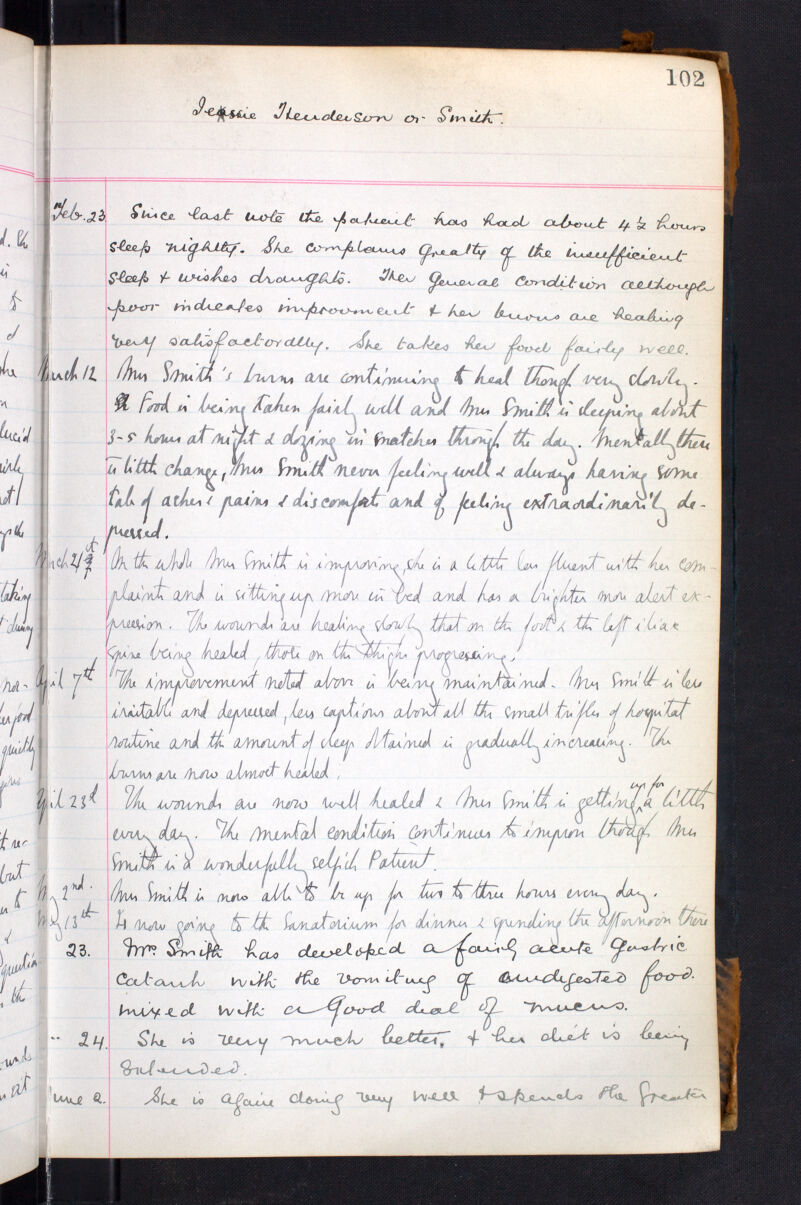 102
Jessie Henderson or Smith.
Feb. 23 Since last note the patient has had about 4½ hours
sleep nightly. She complains greatly of the insufficient
sleep & wishes draughts. Her general condition although
poor indicates improvement & her burns are healing
very satisfactorily. She takes her food fairly well.
March 12 Mrs Smith's burns are continuing to heal though very slowly.
Food is being taken fairly well and Mrs Smith is sleeping about
3-5 hours at night & dozing in snatches through the day. Mentally there
is little change, Mrs Smith never feeling well & always having some
tale of aches & pains & discomforts and of feeling extraordinarily de-
pressed.
March 21st On the whole Mrs Smith is improving, she is a little less fluent with her com-
plaints and is sitting up more in bed and has a brighter more alert ex-
pression. The wounds are healing slowly that on the foot & the left iliac
spine being healed, those on the thigh progressing.
April 7th The improvement noted above is being maintained. Mrs Smith is less
irritable and depressed, less captious about all the small trifles of hospital
routine and the amount of sleep obtained is gradually increasing. The
burns are now almost healed.
April 23d The wounds are now well healed & Mrs Smith is getting up for a little
every day. The mental condition continues to improve though Mrs
Smith is a wonderfully selfish Patient.
May 2nd. Mrs Smith is now able to be up for two to three hours every day.
May 13th Is now going to the Sanatorium for dinner & spending the afternoon there
23. Mrs Smith has developed a fairly acute gastric
catarrh with the vomiting of undigested food
mixed with a good deal of mucus.
" 24. She is very much better, & her diet is being
extended.
June 2. She is again doing very well & spends the greater